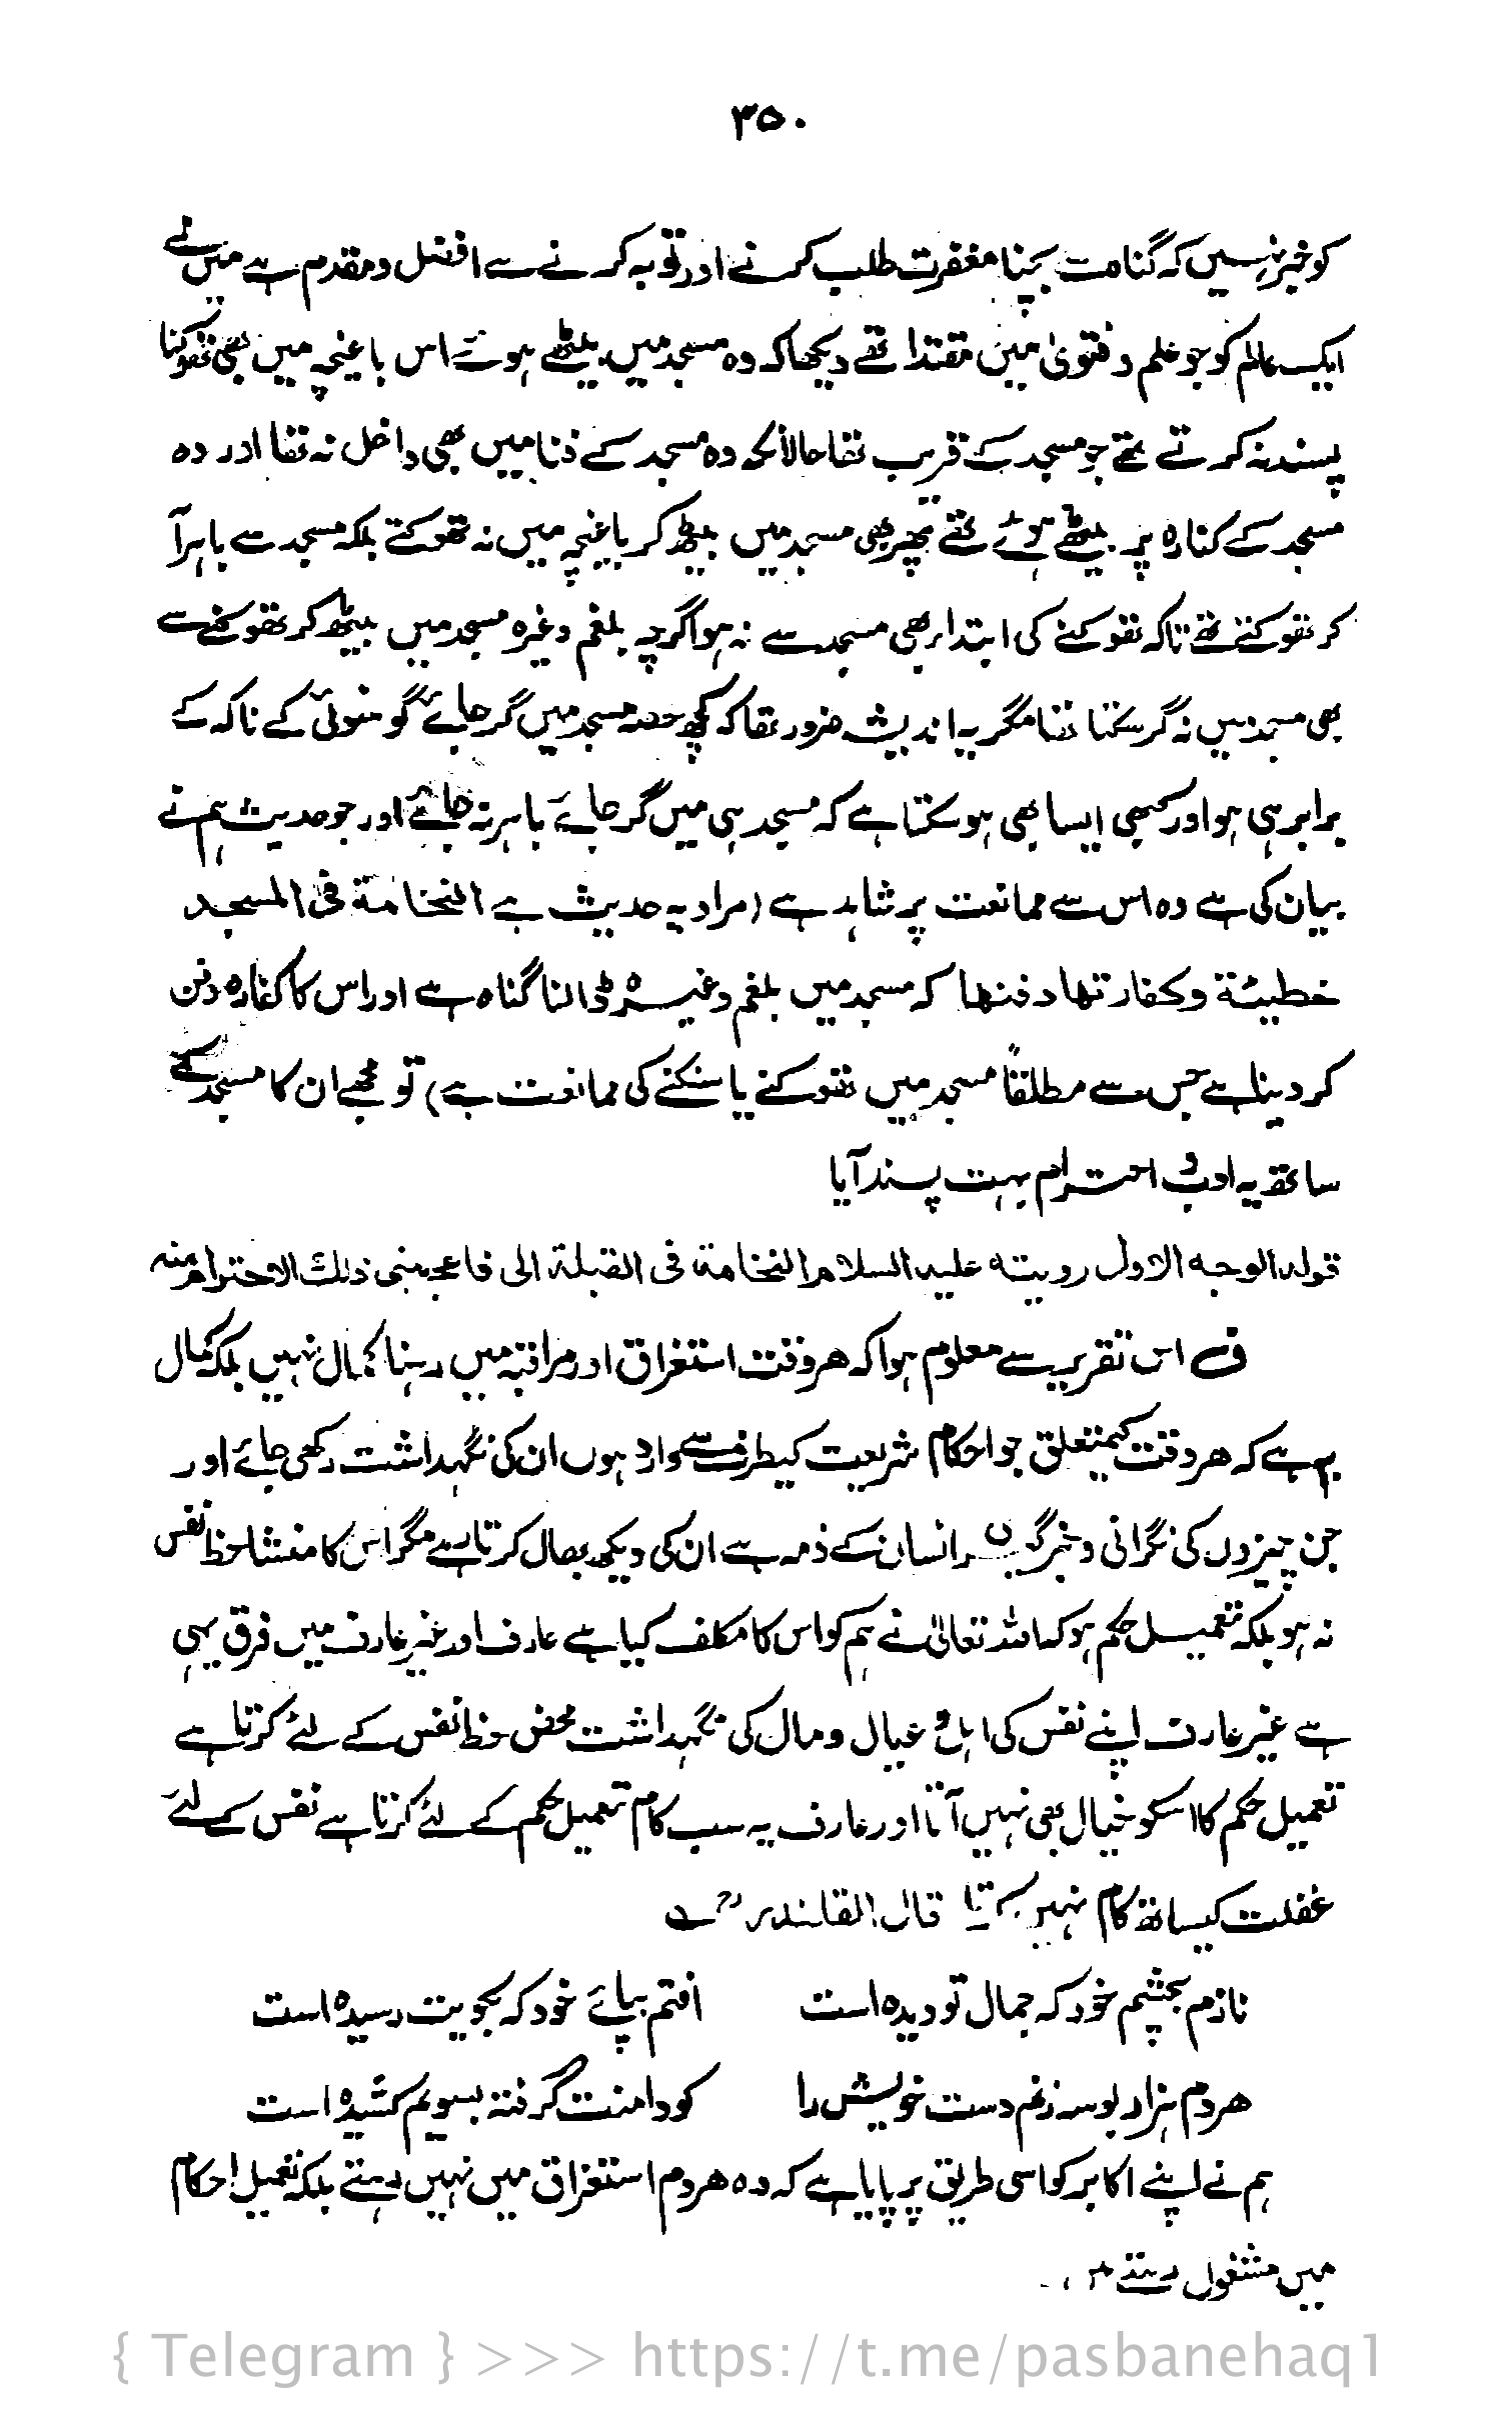 ۳۵۰
کو خبر نہیں کہ گناہ سے بچنا مغفرت طلب کرنے اور توبہ کرنے سے افضل و مقدم ہے میں نے
ایک عالم کو جو علم و فتویٰ میں مقتدا تھے دیکھا کہ وہ مسجد میں بیٹھے ہوئے اس باغیچہ میں بھی تھوکنا
پسند نہ کرتے تھے جو مسجد کے قریب تھا حالانکہ وہ مسجد کے فنا میں بھی داخل نہ تھا اور وہ
مسجد کے کنارہ پر بیٹھے ہوئے تھے پھر بھی مسجد میں بیٹھ کر باغیچہ میں نہ تھوکتے بلکہ مسجد سے باہر آ
کر تھوکتے تھے تاکہ تھوکنے کی ابتدا بھی مسجد سے نہ ہو اگرچہ بلغم وغیرہ مسجد میں بیٹھ کر تھوکنے سے
بھی مسجد میں نہ گر سکتا تھا مگر یہ اندیشہ ضرور تھا کہ کچھ حصہ مسجد میں گر جائے گو سوئی کے ناکہ کے
برابر ہی ہو اور کبھی ایسا بھی ہو سکتا ہے کہ مسجد ہی میں گر جائے باہر نہ جائے اور جو حدیث ہم نے
بیان کی ہے وہ اس سے ممانعت پر شاہد ہے (مراد یہ حدیث ہے النخامة فی المسجد
خطیئة وکفارتھا دفنھا کہ مسجد میں بلغم وغیرہ ڈالنا گناہ ہے اور اس کا کفارہ دفن
کر دینا ہے جس سے مطلقاً مسجد میں تھوکنے یا سنکنے کی ممانعت ہے) تو مجھے ان کا مسجد کے
ساتھ یہ ادب و احترام بہت پسند آیا
قولہ الوجہ الاول رویتہ علیہ السلام النخامة فی القبلة الی فاعجبنی ذلک الاحترام منہ
ف اس تقریر سے معلوم ہوا کہ ھر وقت استغراق اور مراقبہ میں رہنا کمال نہیں بلکہ کمال
یہ ہے کہ ھر وقت کے متعلق جو احکام شریعت کیطرف سے وارد ہوں ان کی نگہداشت رکھی جائے اور
جن چیزوں کی نگرانی و خبرگیری انسان کے ذمہ ہے ان کی دیکھ بھال کرتا رہے مگر اس کا منشا حظ نفس
نہ ہو بلکہ تعمیل حکم ہو کہ اللہ تعالیٰ نے ہم کو اس کا مکلف کیا ہے عارف اور غیر عارف میں فرق یہی
ہے غیر عارف اپنے نفس کی اہل و عیال و مال کی نگہداشت محض حظ نفس کے لئے کرتا ہے
تعمیل حکم کا اسکو خیال بھی نہیں آتا اور عارف یہ سب کام تعمیل حکم کے لئے کرتا ہے نفس کے لئے
غفلت کیساتھ کام نہیں کرتا قال القلندر رح ؎
نازم بچشم خود کہ جمال تو دیدہ است افتم بپائے خود کہ بکویت رسیدہ است
ھر دم ہزار بوسہ زنم دست خویش را کو دامنت گرفتہ بسویم کشیدہ است
ہم نے اپنے اکابر کو اسی طریق پر پایا ہے کہ وہ ھر دم استغراق میں نہیں رہتے بلکہ تعمیل احکام
میں مشغول رہتے
{ Telegram } >>> https://t.me/pasbanehaq1